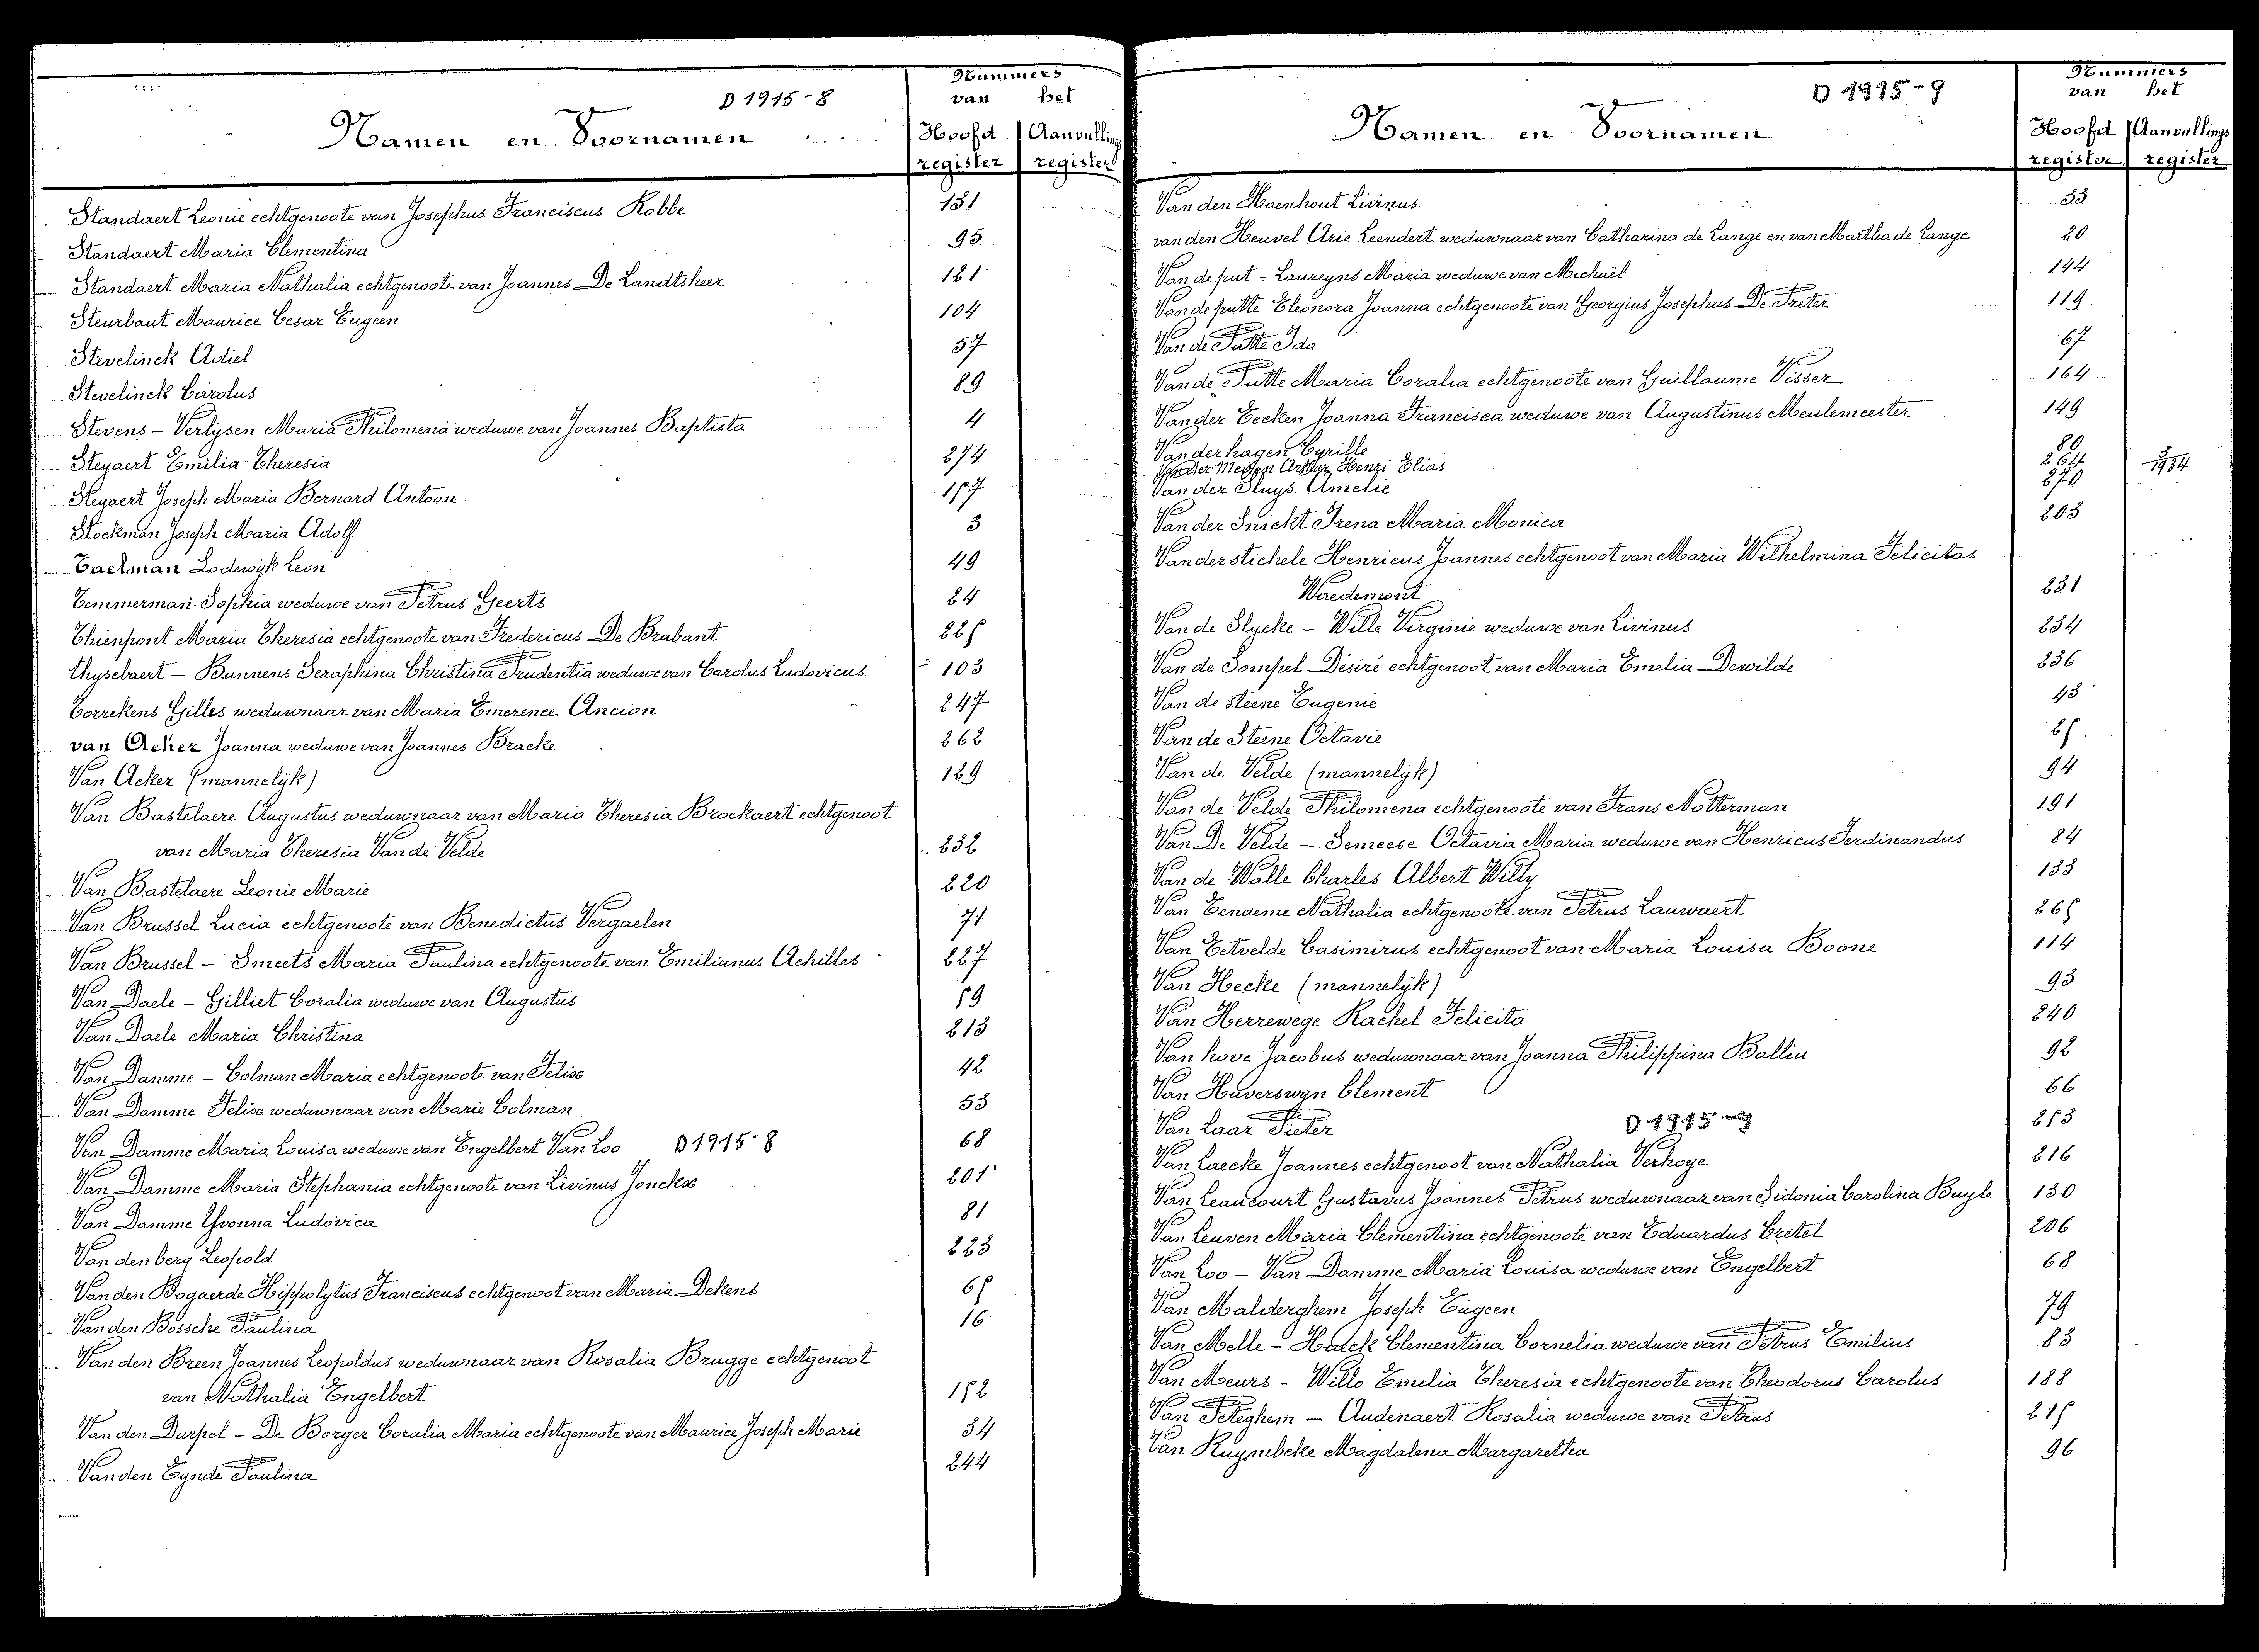 D 1915-8
Namen en Voornamen
Nummers
van het
Hoofd Aanvullings
register register
Standaert Leonie echtgenoote van Josephus Franciscus Robbe 131
Standaert Maria Clementina 95
Standaert Maria Nathalia echtgenoote van Joannes De Landtsheer 121
Steurbaut Maurice Cesar Eugeen 104
Stevelinck Adiel 57
Stevelinck Carolus 89
Stevens - Verlysen Maria Philomena weduwe van Joannes Baptista 4
Steyaert Emilia Theresia 274
Steyaert Joseph Maria Bernard Antoon 157
Stockman Joseph Maria Adolf 3
Taelman Lodewijk Leon 49
Temmerman Sophia weduwe van Petrus Geerts 24
Thienpont Maria Theresia echtgenoote van Fredericus De Brabant 225
Thysebaert - Bunnens Seraphina Christina Prudentia weduwe van Carolus Ludovicus 103
Torrekens Gilles weduwnaar van Maria Emerence Ancion 247
van Acker Joanna weduwe van Joannes Bracke 262
Van Acker (mannelijk) 129
Van Bastelaere Augustus weduwnaar van Maria Theresia Brockaert echtgenoot
van Maria Theresia Van de Velde 232
Van Bastelaere Leonie Marie 220
Van Brussel Lucia echtgenoote van Benedictus Vergaelen 71
Van Brussel - Smeets Maria Paulina echtgenoote van Emilianus Achilles 227
Van Daele - Gilliet Coralia weduwe van Augustus 59
Van Daele Maria Christina 213
Van Damme - Colman Maria echtgenoote van Felix 42
Van Damme Felix weduwnaar van Marie Colman 53
Van Damme Maria Louisa weduwe van Engelbert Van Loo D 1915-8 68
Van Damme Maria Stephania echtgenoote van Livinus Jonckx 201
Van Damme Yvonna Ludovica 81
Van den berg Leopold 223
Van den Bogaerde Hippolytus Franciscus echtgenoot van Maria Dekens 65
Van den Bossche Paulina 16
Van den Breen Joannes Leopoldus weduwnaar van Rosalia Brugge echtgenoot
van Nathalia Engelbert 152
Van den Durpel - De Borger Coralia Maria echtgenoote van Maurice Joseph Marie 34
Van den Eynde Paulina 244
D 1915-9
Namen en Voornamen
Nummers
van het
Hoofd Aanvullings
register register
Van den Haenhout Livinus 33
van den Heuvel Arie Leendert weduwnaar van Catharina de Lange en van Martha de Lange 20
Van de put - Laureyns Maria weduwe van Michaël 144
Van de putte Eleonora Joanna echtgenoote van Georgius Josephus De Preter 119
Van de Putte Ida 67
Van de Putte Maria Coralia echtgenoote van Guillaume Visser 164
Van der Eecken Joanna Francisca weduwe van Augustinus Meulemeester 149
Van der hagen Cyrille 80
Van der Meiren Arthur Henri Elias 264 3/1934
Van der Sluys Amelie 270
Van der Snickt Irena Maria Monica 203
Van der stichele Henricus Joannes echtgenoot van Maria Wilhelmina Felicitas
Waedemont 231
Van de Slycke - Wille Virginie weduwe van Livinus 234
Van de Sompel Désiré echtgenoot van Maria Emelia Dewilde 236
Van de steene Eugenie 43
Van de Steene Octavie 25
Van de Velde (mannelijk) 94
Van de Velde Philomena echtgenoote van Frans Notterman 191
Van De Velde - Semeese Octavia Maria weduwe van Henricus Ferdinandus 84
Van de Walle Charles Albert Willy 133
Van Eenaeme Nathalia echtgenoote van Petrus Lauwaert 265
Van Eetvelde Casimirus echtgenoot van Maria Louisa Boone 114
Van Hecke (mannelijk) 93
Van Herrewege Rachel Felicita 240
Van hove Jacobus weduwnaar van Joanna Philippina Ballin 92
Van Huverswyn Clement 66
Van Laar Pieter D 1915-9 253
Van Laecke Joannes echtgenoot van Nathalia Verhoye 216
Van Leaucourt Gustavus Joannes Petrus weduwnaar van Sidonia Carolina Buyle 130
Van Leuven Maria Clementina echtgenoote van Eduardus Cretel 206
Van Loo - Van Damme Maria Louisa weduwe van Engelbert 68
Van Malderghem Joseph Eugeen 79
Van Melle - Haeck Clementina Cornelia weduwe van Petrus Emilius 83
Van Meurs - Willo Emelia Theresia echtgenoote van Theodorus Carolus 188
Van Peteghem - Audenaert Rosalia weduwe van Petrus 215
Van Ruymbeke Magdalena Margaretha 96